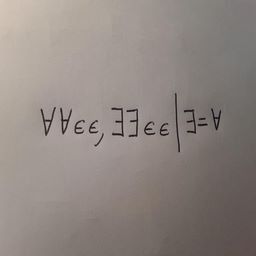 ∀∀∈∈, ∃∃∈∈|∃=∀